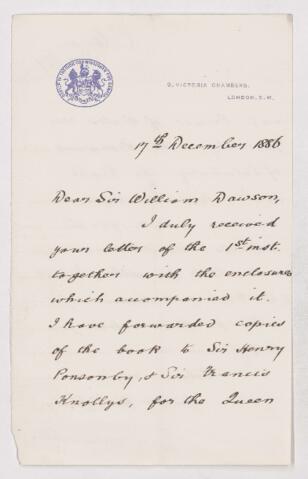 9, VICTORIA CHAMBERS,
LONDON, S.W.
17th December 1886
Dear Sir William Dawson,
I duly received
your letter of the 1st inst.
together with the enclosures
which accompanied it.
I have forwarded copies
of the book to Sir Henry
Ponsonby, & Sir Francis
Knollys, for the Queen